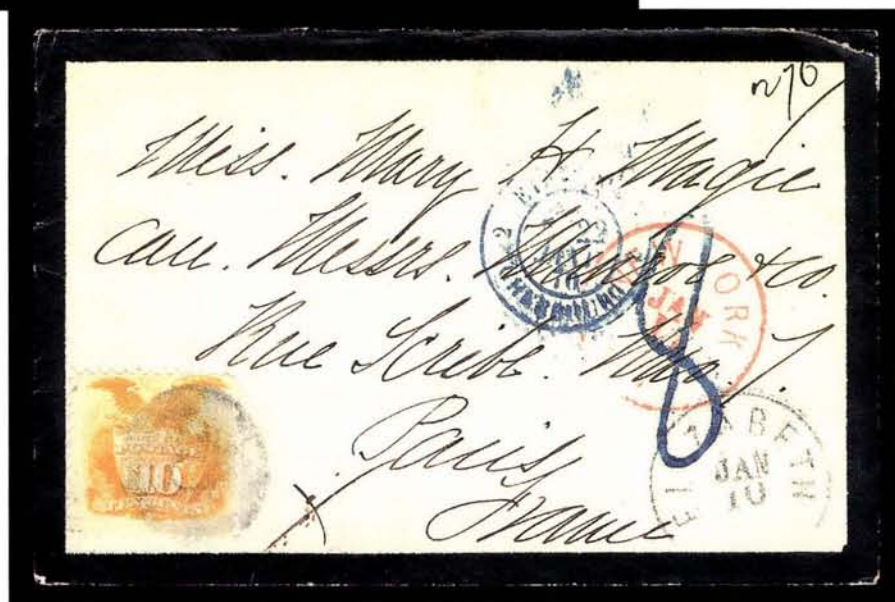 n76
Miss. Mary H Magie
care. Messrs. Munroe & Co.
Rue Scribe. No. 7.
Paris
France
2
22
JANV
CHERBOURG
NEW YORK
JAN
8
ELIZABETH
JAN
10
10